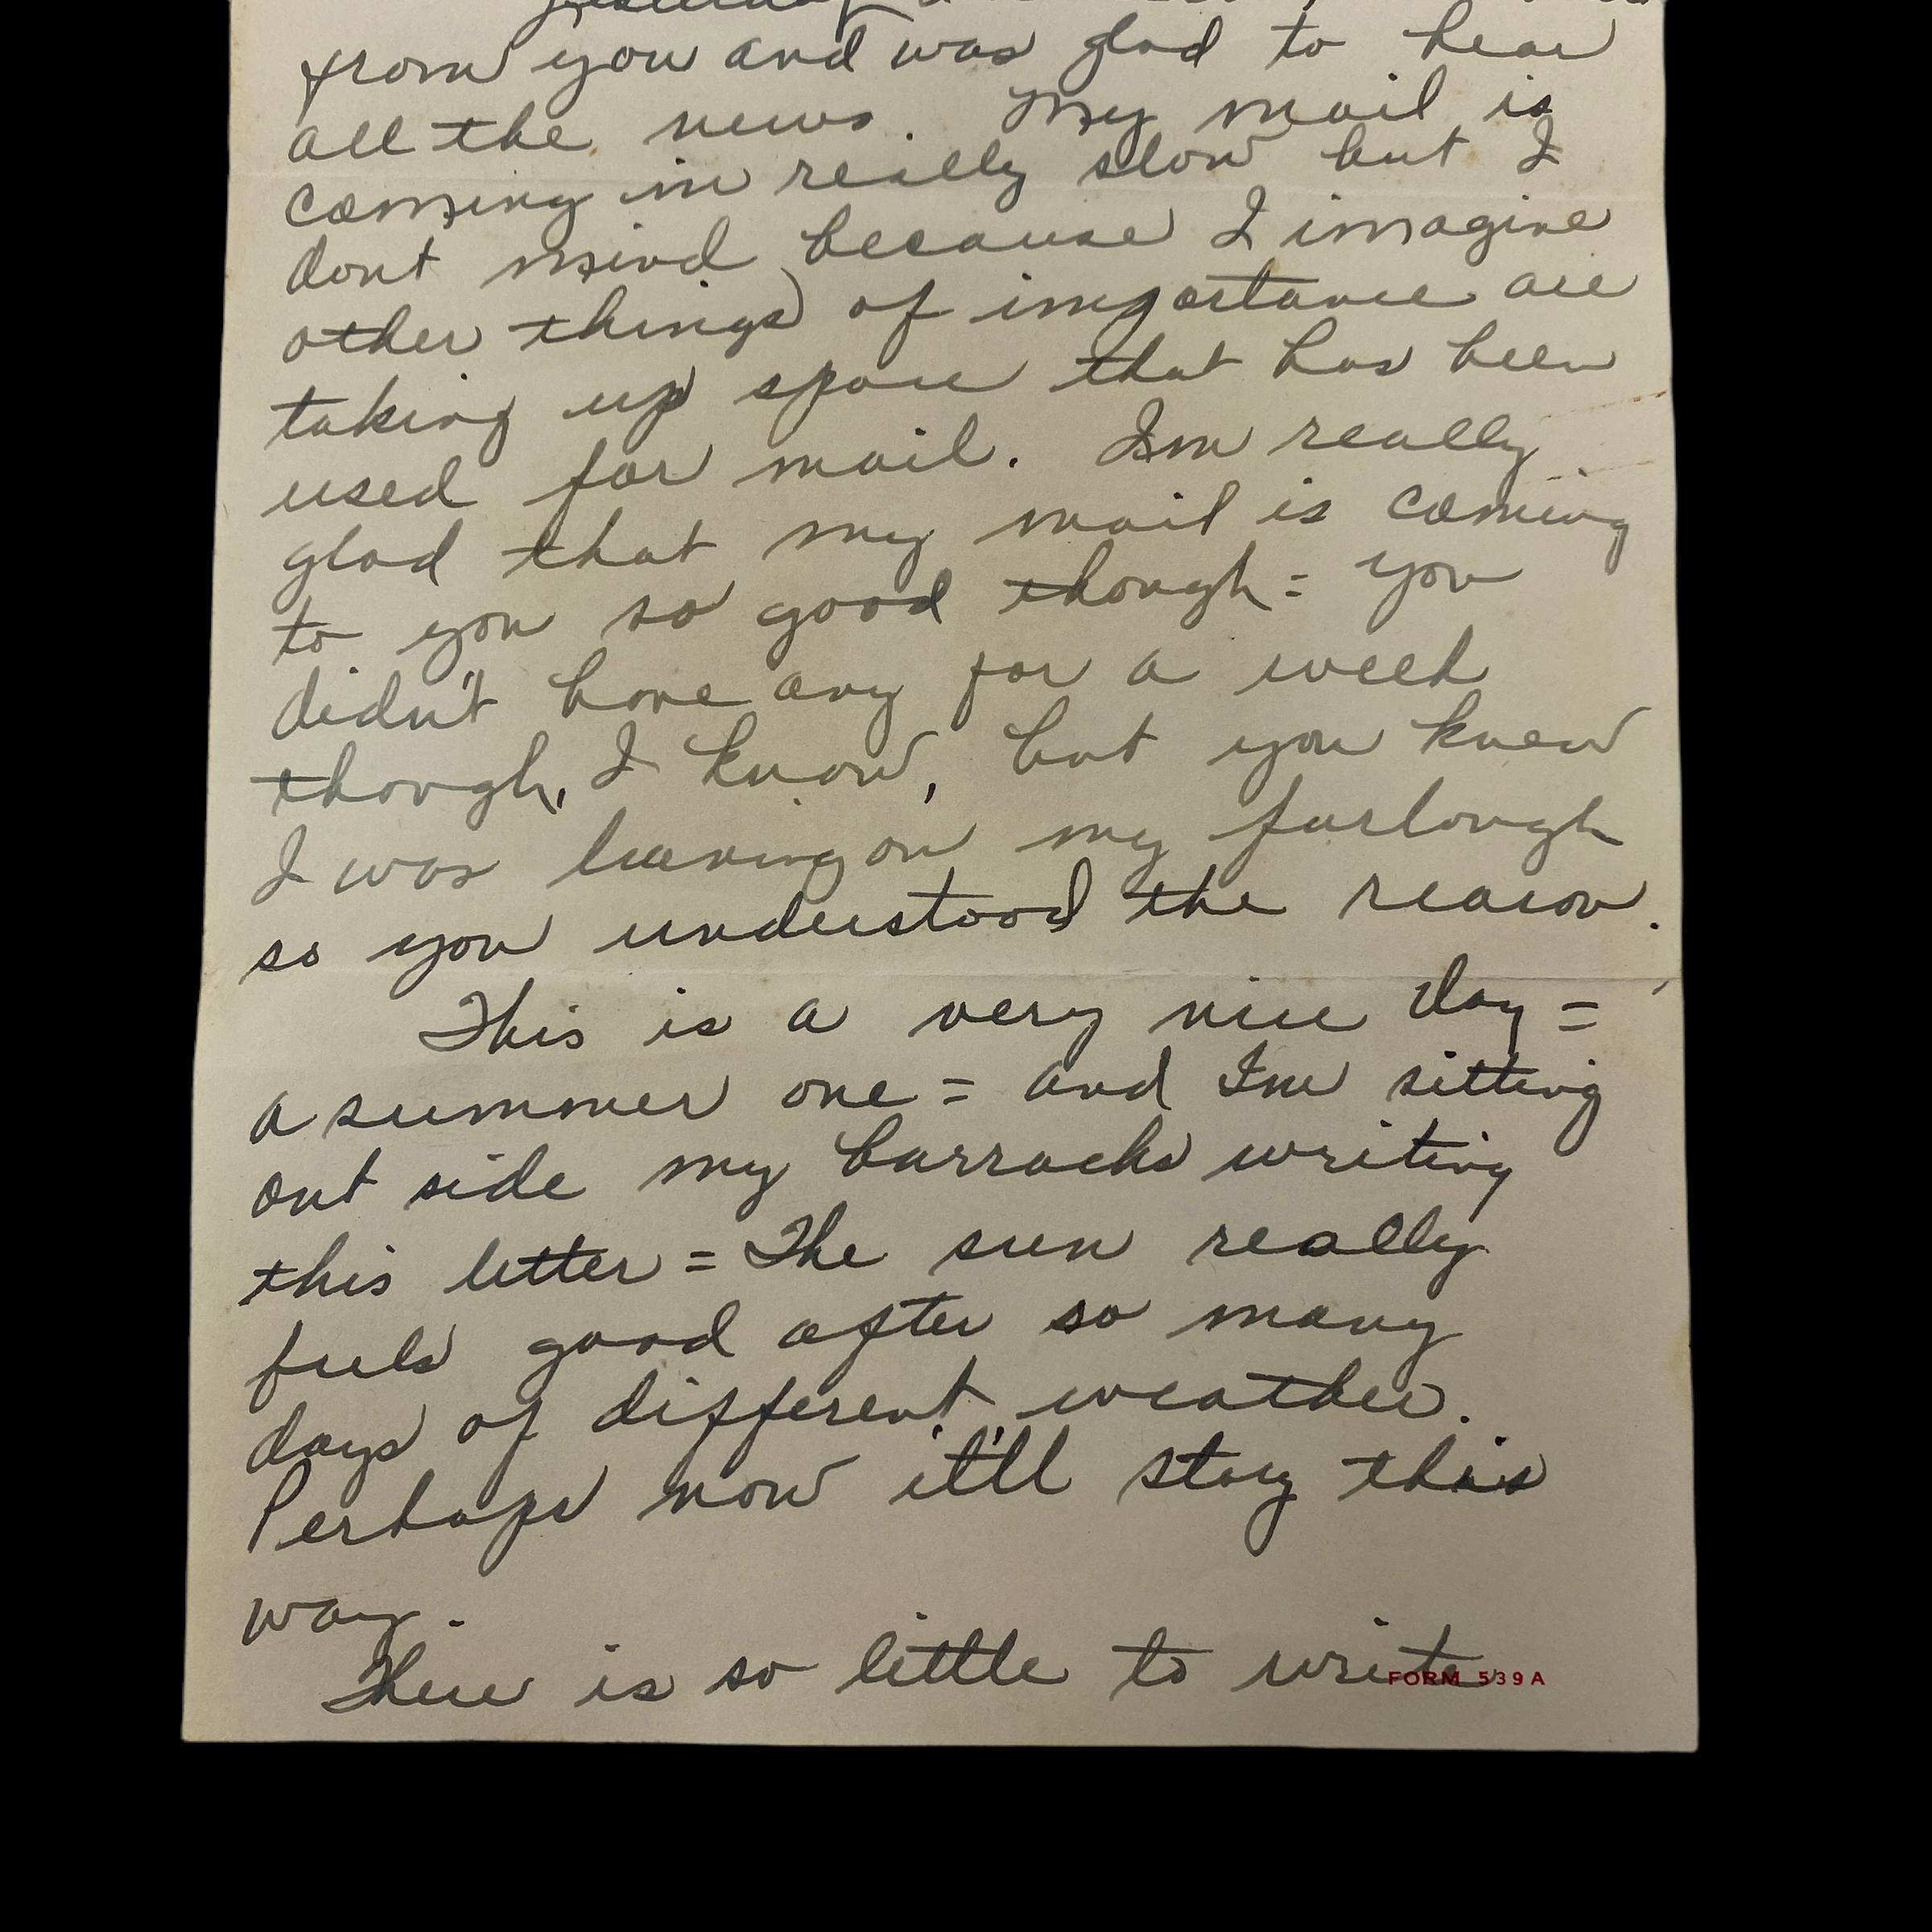 Yesterday
from you and was glad to hear
all the news. My mail is
coming in really slow but I
dont mind because I imagine
other things of importance are
taking up space that has been
used for mail. Im really
glad that my mail is coming
to you so good though = you
didn't have any for a week
though, I know, but you knew
I was leaving on my furlough
so you understood the reason.
This is a very nice day =
a summer one = and Im sitting
out side my barracks writing
this letter = The sun really
feels good after so many
days of different weather.
Perhaps now it'll stay this
way.
There is so little to write
FORM 539A